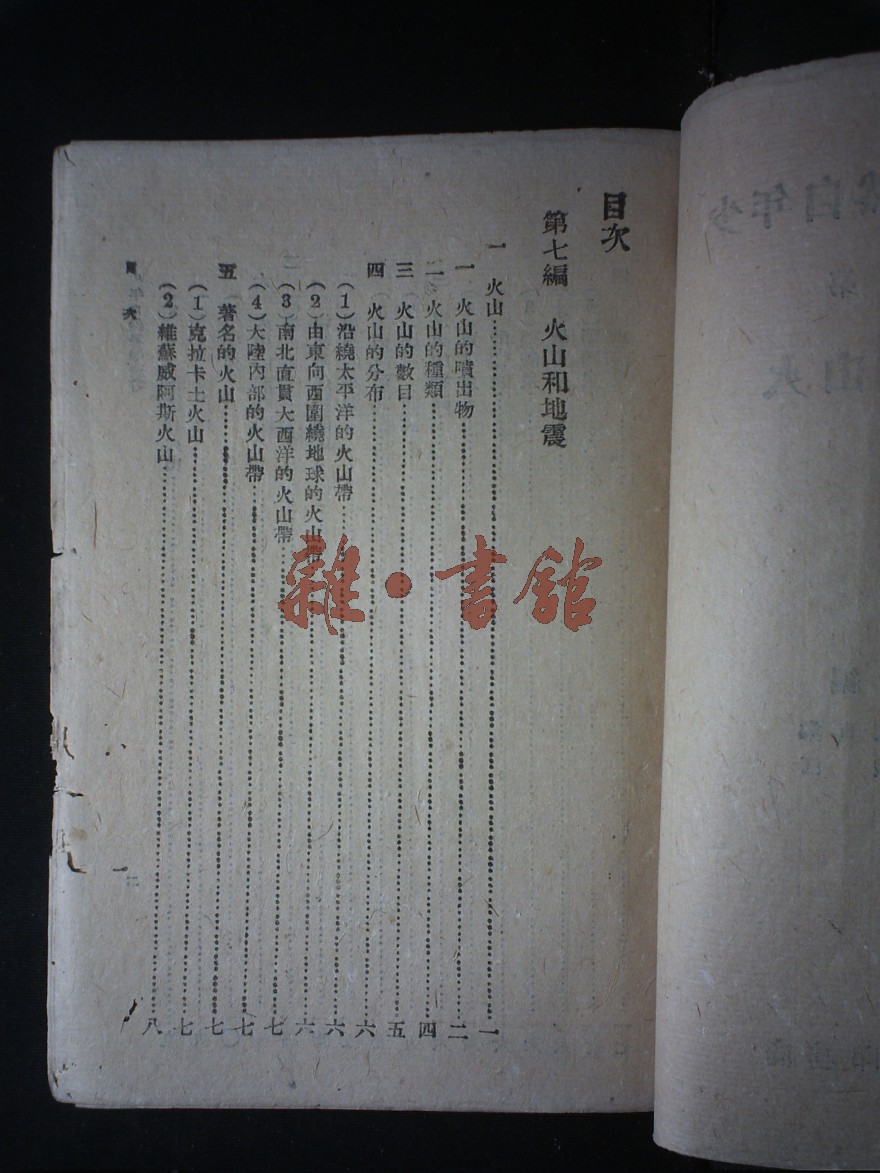 目次
第七編 火山和地震
一 火山……一
一 火山的噴出物……二
二 火山的種類……四
三 火山的數目……五
四 火山的分布……六
（1）沿繞太平洋的火山帶……六
（2）由東向西圍繞地球的火山帶……六
（3）南北直貫大西洋的火山帶……七
（4）大陸內部的火山帶……七
五 著名的火山……七
（1）克拉卡土火山……七
（2）維蘇威阿斯火山……八
目次
一
雜·書館